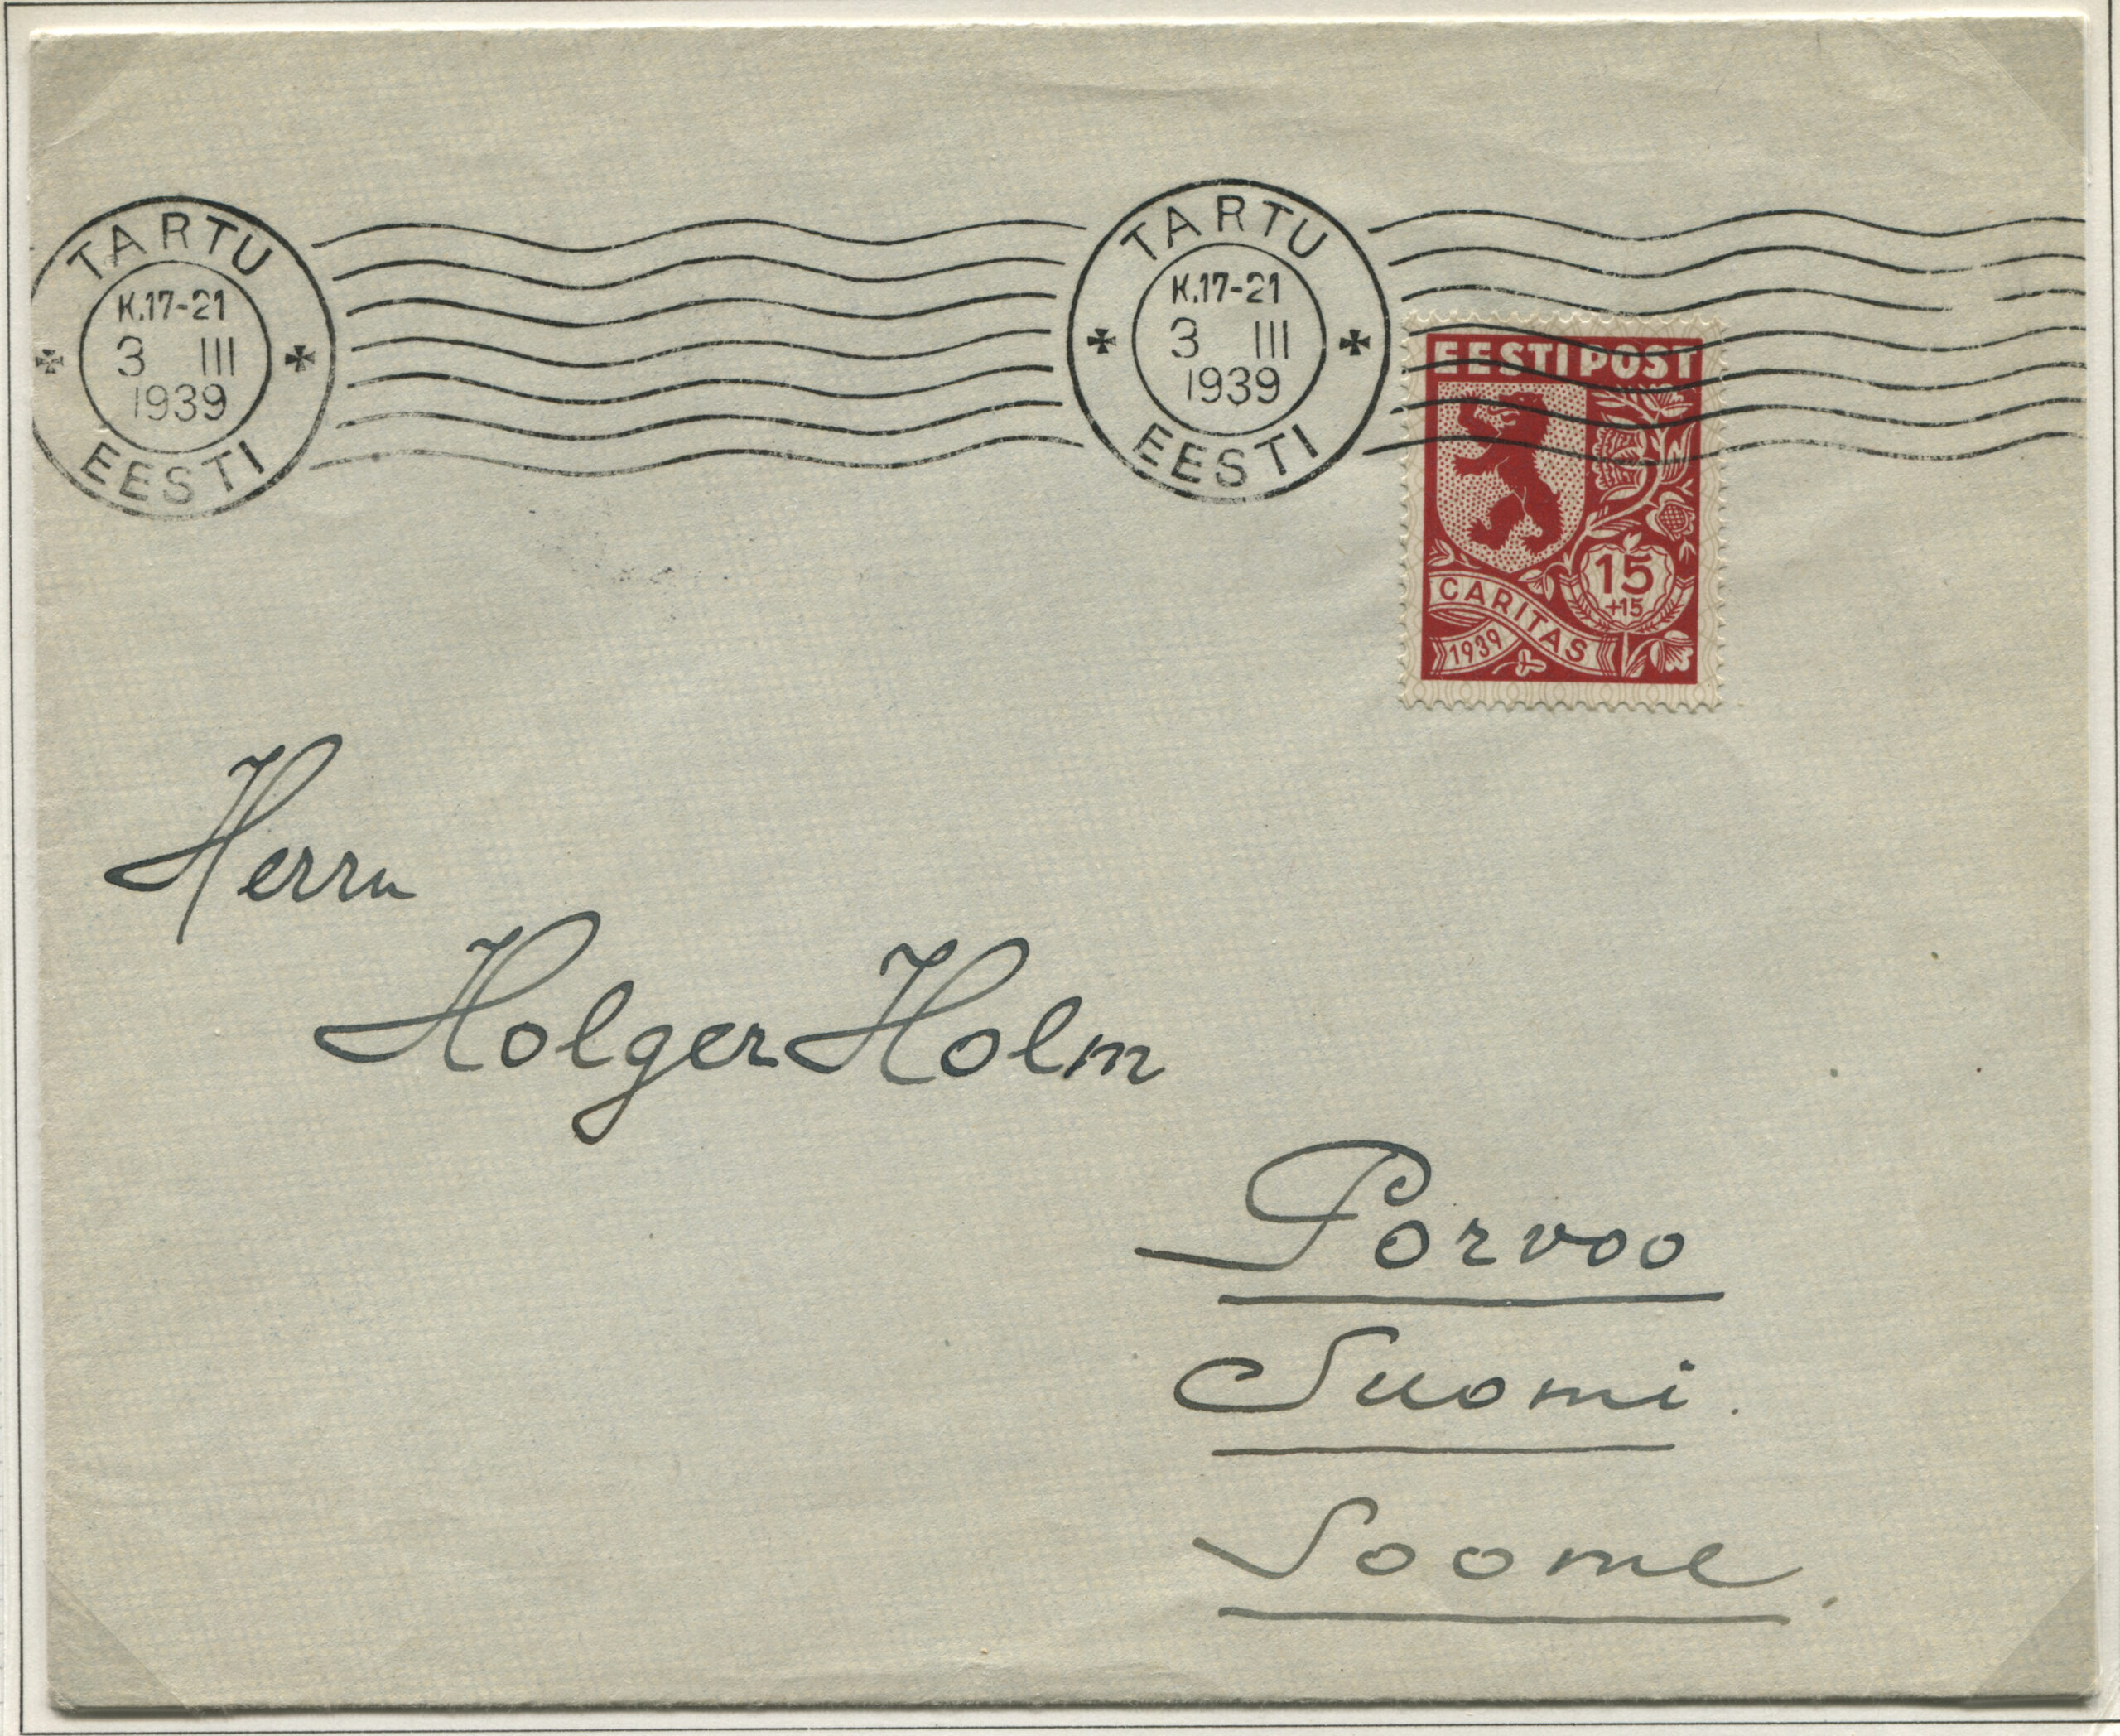 TARTU
K.17-21
3 III
1939
EESTI
TARTU
K.17-21
3 III
1939
EESTI
EESTI POST
15
+15
CARITAS
1939
Herrn
Holger Holm
Porvoo
Suomi.
Soome.